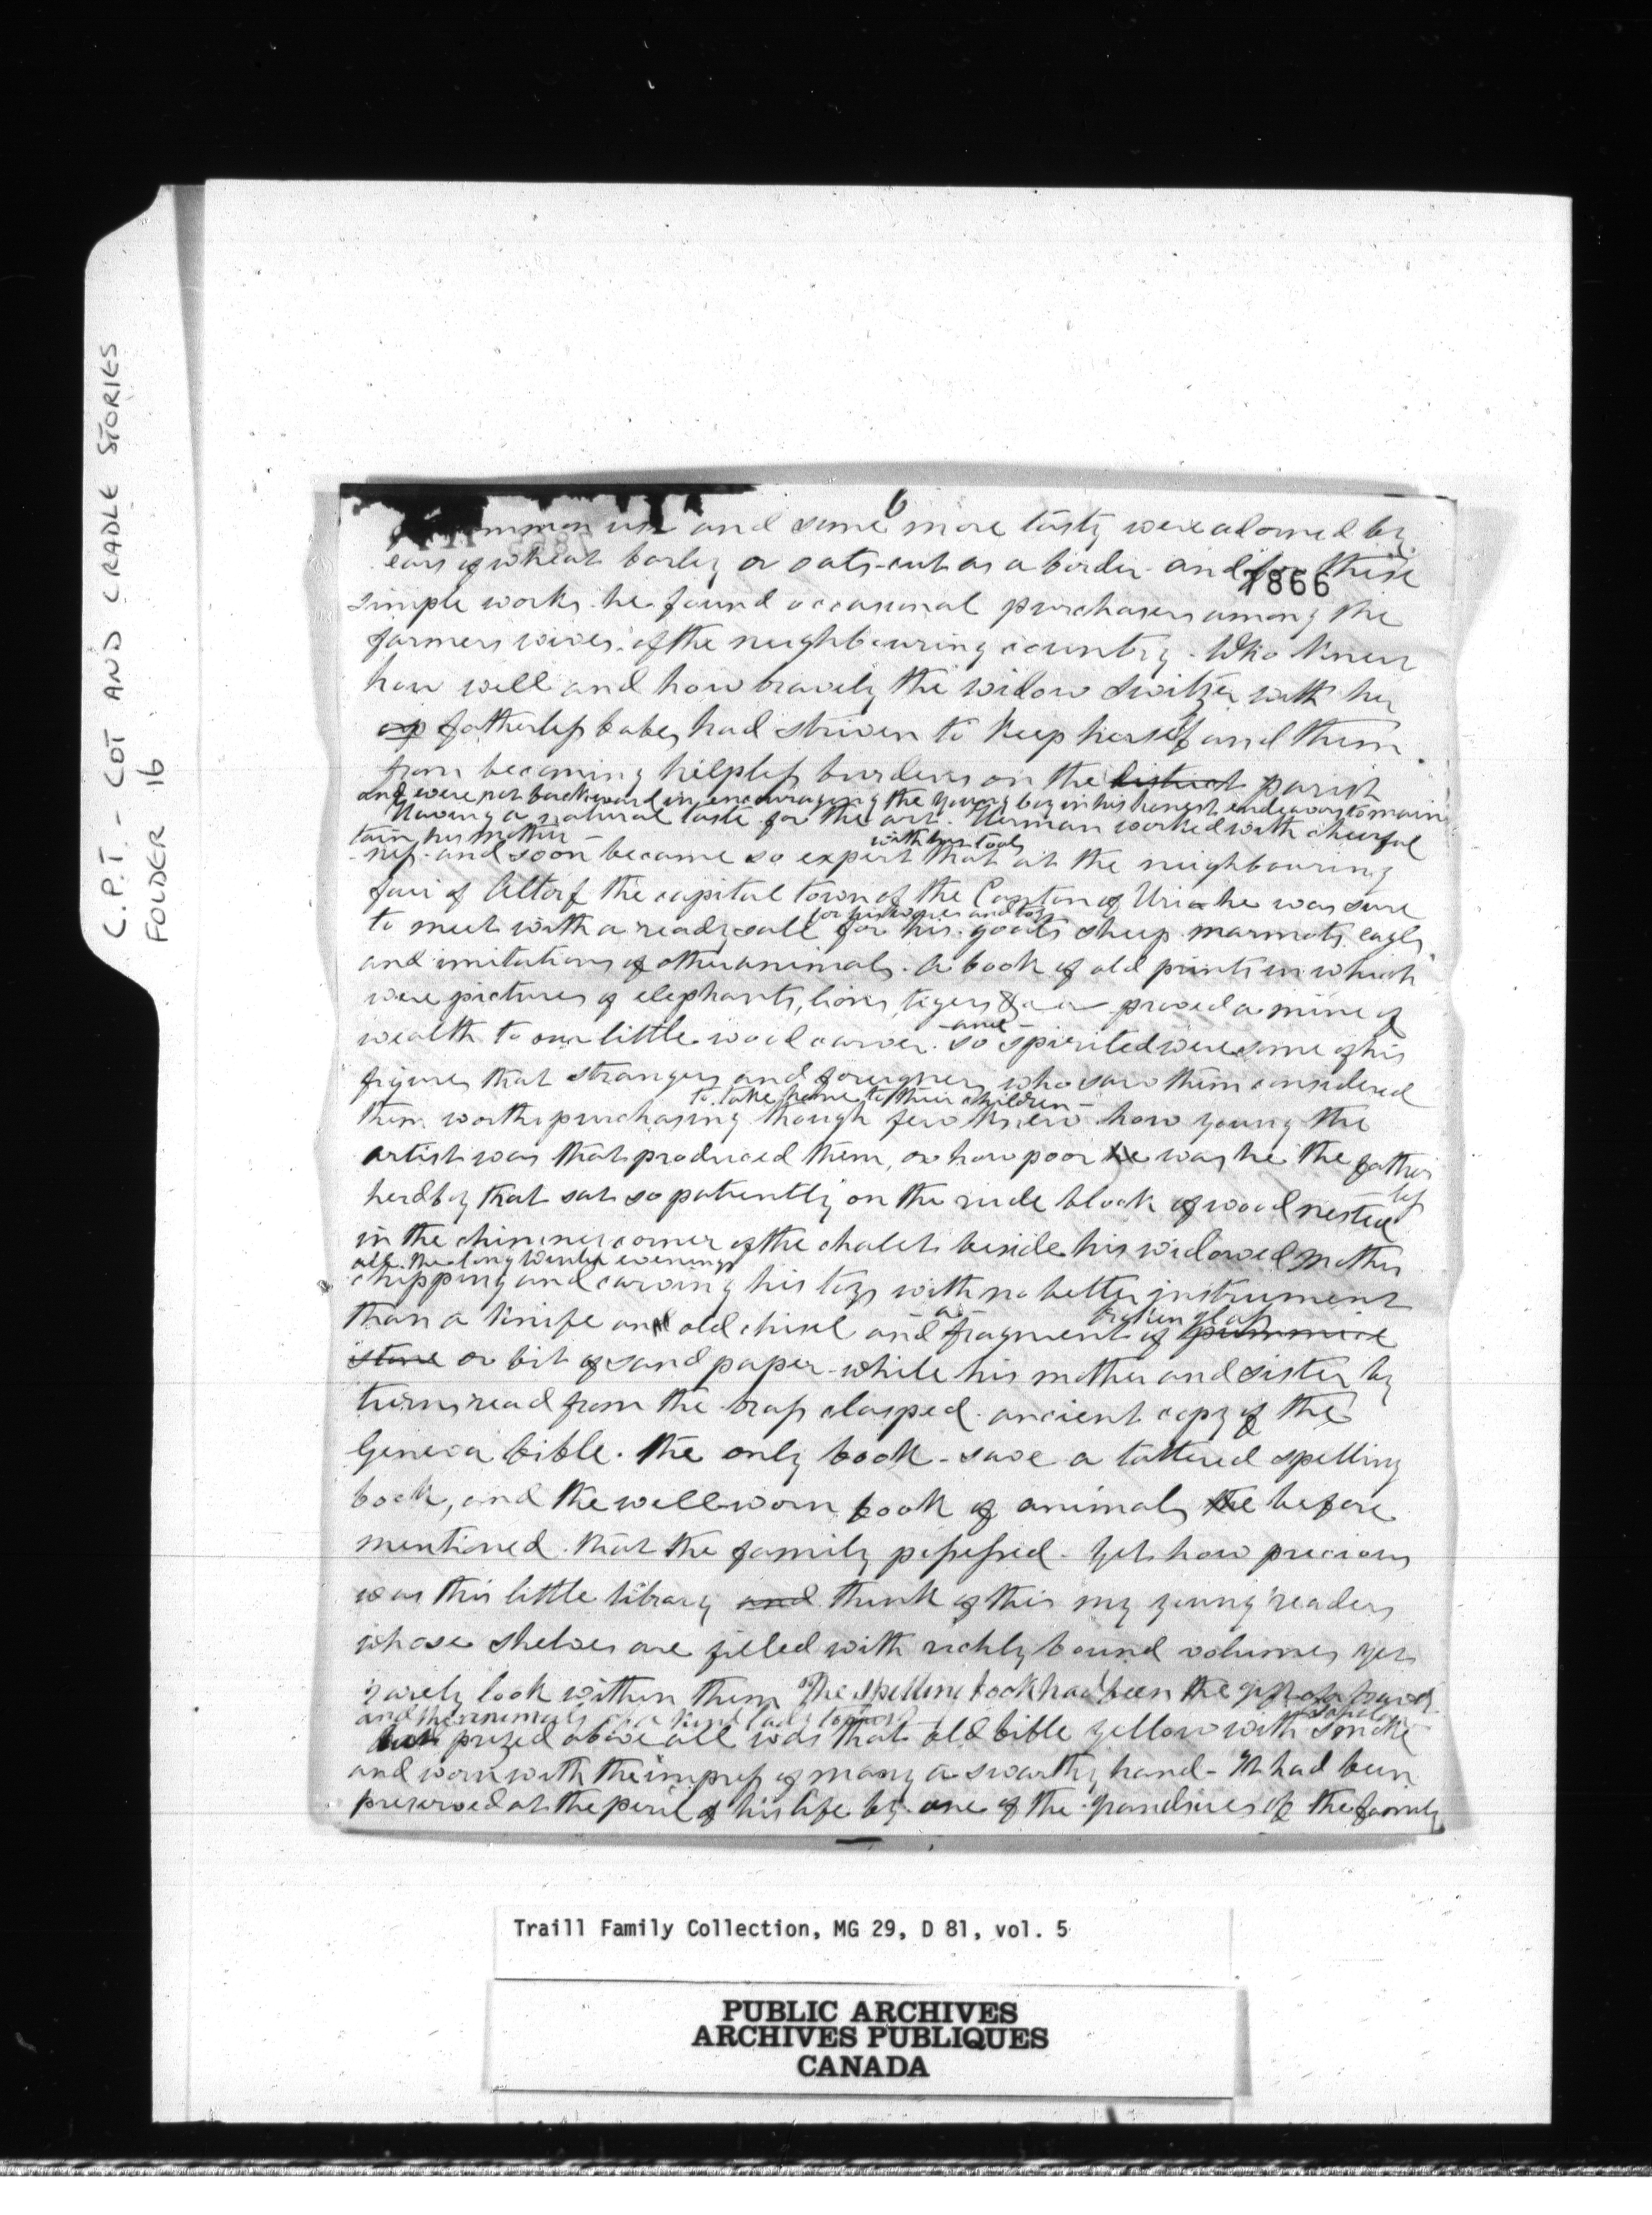 C.P.T. - COT AND CRADLE STORIES
FOLDER 16
6
common use and some more tasty were adorned by
ears of wheat barley or oats - cut as a border - and for these
7866
simple works he found occasional purchasers among the
farmers wives of the neighbouring country - Who knew
how well and how bravely the widow Switzer with her
fatherless babes had striven to keep herself and them
from becoming helpless burdens on the district parish
and were not backward in encouraging the young boy in his honest endeavors to main
Having a natural taste for the art. Herman worked with cheerful
tain his mother -
with his tools
ness - and soon became so expert that at the neighbouring
fair of Altorf the capital town of the Canton of Uri he was sure
for his wares and toys
to meet with a ready sale for his goats sheep marmots eagles
and imitations of other animals. A book of old prints in which
were pictures of elephants, lions, tigers &c proved a mine of
- and -
wealth to our little wood carver. so spirited were some of his
figures that strangers and foreigners who saw them considered
to take home to their children -
them worth purchasing though few knew how young the
artist was that produced them, or how poor he was he the father
less
herdboy that sat so patiently on the rude block of wood nested
in the chimney corner of the chalet beside his widowed mother
all the long winter evenings
chipping and carving his toys with no better instrument
a
broken glass
than a knife and old chisel and fragment of pummice
stone or bit of sand paper - while his mother and sister by
turns read from the brass clasped ancient copy of the
Geneva bible. the only book - save a tattered spelling
book, and the well worn book of animals the before
mentioned that the family possessed - Yet how precious
was this little library and think of this my young readers
whose shelves are filled with richly bound volumes yet
rarely look within them The spelling book had been the gift of a
and the animals of a kind lady
but prized above all was that old bible yellow with smoke
and worn with the impress of many a swarthy hand - It had been
preserved at the peril of his life by one of the grandsires of the family
Traill Family Collection, MG 29, D 81, vol. 5
PUBLIC ARCHIVES
ARCHIVES PUBLIQUES
CANADA